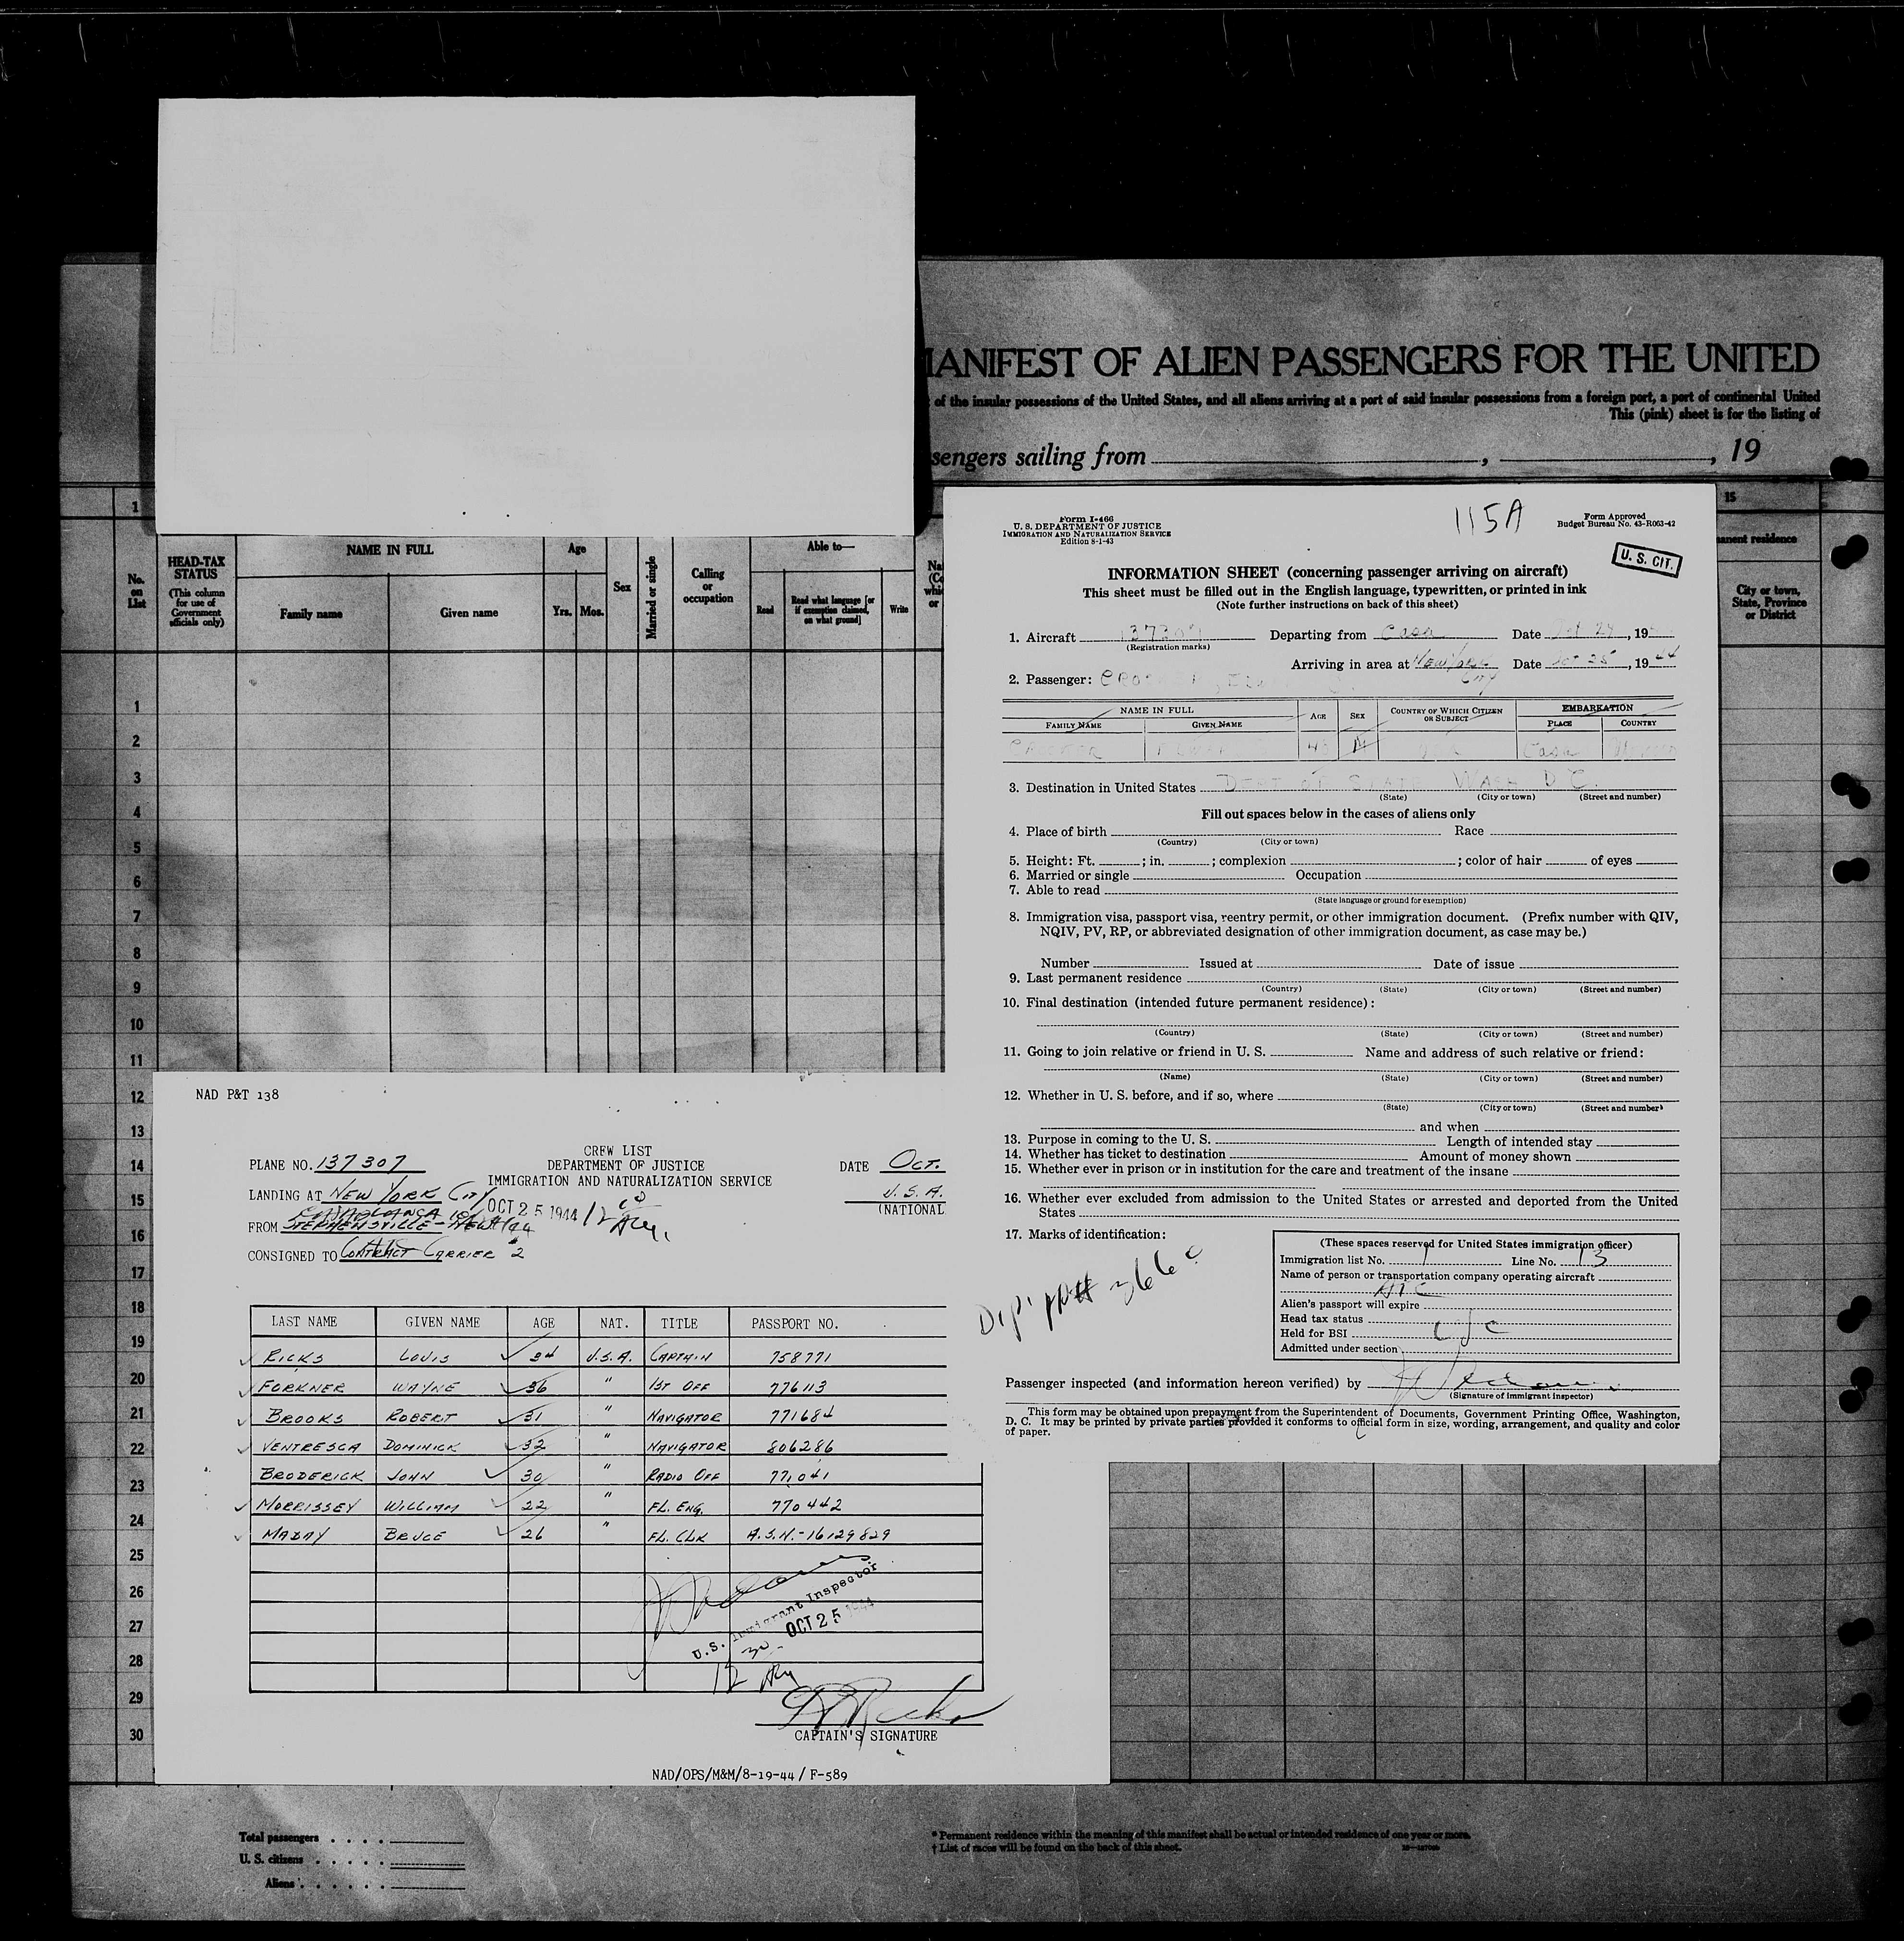 MANIFEST OF ALIEN PASSENGERS FOR THE UNITED
of the insular possessions of the United States, and all aliens arriving at a port of said insular possessions from a foreign port, a port of continental United
This (pink) sheet is for the listing of
sengers sailing from , , 19
1
15
HEAD-TAX STATUS
(This column for use of Government officials only)
No. on List
NAME IN FULL
Family name
Given name
Age
Yrs. Mos.
Sex
Married or single
Calling or occupation
Able to—
Read
Read what language [or if exemption claimed, on what ground]
Write
anent residence
City or town, State, Province or District
1
2
3
4
5
6
7
8
9
10
11
12
13
14
15
16
17
18
19
20
21
22
23
24
25
26
27
28
29
30
Total passengers . . . .
U. S. citizens . . . . .
Aliens . . . . . .
* Permanent residence within the meaning of this manifest shall be actual or intended residence of one year or more.
† List of races will be found on the back of this sheet.
Form I-466
U. S. DEPARTMENT OF JUSTICE
IMMIGRATION AND NATURALIZATION SERVICE
Edition 8-1-43
115A
Form Approved
Budget Bureau No. 43-R063-42
U. S. CIT.
INFORMATION SHEET (concerning passenger arriving on aircraft)
This sheet must be filled out in the English language, typewritten, or printed in ink
(Note further instructions on back of this sheet)
1. Aircraft 137307 Departing from Casa Date Oct 24, 19
(Registration marks)
Arriving in area at New York City Date Oct 25, 1944
2. Passenger:
NAME IN FULL
FAMILY NAME
GIVEN NAME
AGE
SEX
COUNTRY OF WHICH CITIZEN OR SUBJECT
EMBARKATION
PLACE
COUNTRY
M Casa
3. Destination in United States DEPT OF STATE WASH D C.
(State) (City or town) (Street and number)
Fill out spaces below in the cases of aliens only
4. Place of birth Race
(Country) (City or town)
5. Height: Ft. ; in. ; complexion ; color of hair of eyes
6. Married or single Occupation
7. Able to read
(State language or ground for exemption)
8. Immigration visa, passport visa, reentry permit, or other immigration document. (Prefix number with QIV,
NQIV, PV, RP, or abbreviated designation of other immigration document, as case may be.)
Number Issued at Date of issue
9. Last permanent residence
(Country) (State) (City or town) (Street and number)
10. Final destination (intended future permanent residence):
(Country) (State) (City or town) (Street and number)
11. Going to join relative or friend in U. S. Name and address of such relative or friend:
(Name) (State) (City or town) (Street and number)
12. Whether in U. S. before, and if so, where
(State) (City or town) (Street and number)
and when
13. Purpose in coming to the U. S. Length of intended stay
14. Whether has ticket to destination Amount of money shown
15. Whether ever in prison or in institution for the care and treatment of the insane
16. Whether ever excluded from admission to the United States or arrested and deported from the United
States
17. Marks of identification:
(These spaces reserved for United States immigration officer)
Immigration list No. 1 Line No. 13
Name of person or transportation company operating aircraft
ATC
Alien's passport will expire
Head tax status
Held for BSI
Admitted under section
Passenger inspected (and information hereon verified) by
(Signature of immigrant inspector)
This form may be obtained upon prepayment from the Superintendent of Documents, Government Printing Office, Washington,
D. C. It may be printed by private parties provided it conforms to official form in size, wording, arrangement, and quality and color
of paper.
NAD P&T 138
CREW LIST
DEPARTMENT OF JUSTICE
IMMIGRATION AND NATURALIZATION SERVICE
PLANE NO. 137307
DATE OCT.
LANDING AT NEW YORK CITY
OCT 25 1944
U.S.A.
(NATIONAL
FROM STEPHENSVILLE
CONSIGNED TO CONTRACT CARRIER #2
LAST NAME GIVEN NAME AGE NAT. TITLE PASSPORT NO.
RICKS LOUIS 34 U.S.A. CAPTAIN 758771
FORKNER WAYNE 36 " 1ST OFF 776113
BROOKS ROBERT 31 " NAVIGATOR 771684
VENTRESCA DOMINICK 32 " NAVIGATOR 806286
BRODERICK JOHN 30 " RADIO OFF 771041
MORRISSEY WILLIAM 22 " FL. ENG. 770442
MADAY BRUCE 26 " FL. CLK A.S.N.-16129829
U.S. Immigrant Inspector
OCT 25 1944
CAPTAIN'S SIGNATURE
NAD/OPS/M&M/8-19-44/F-589